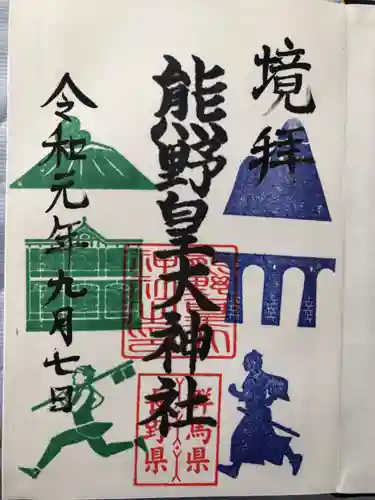 境拝
熊野皇大神社
令和元年九月七日
群馬県
長野県